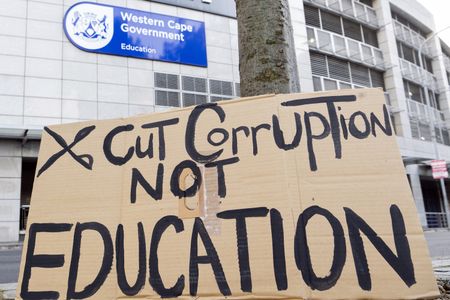 Western Cape
Government
Education
CUT CorrupTion
NOT
EDUCATION